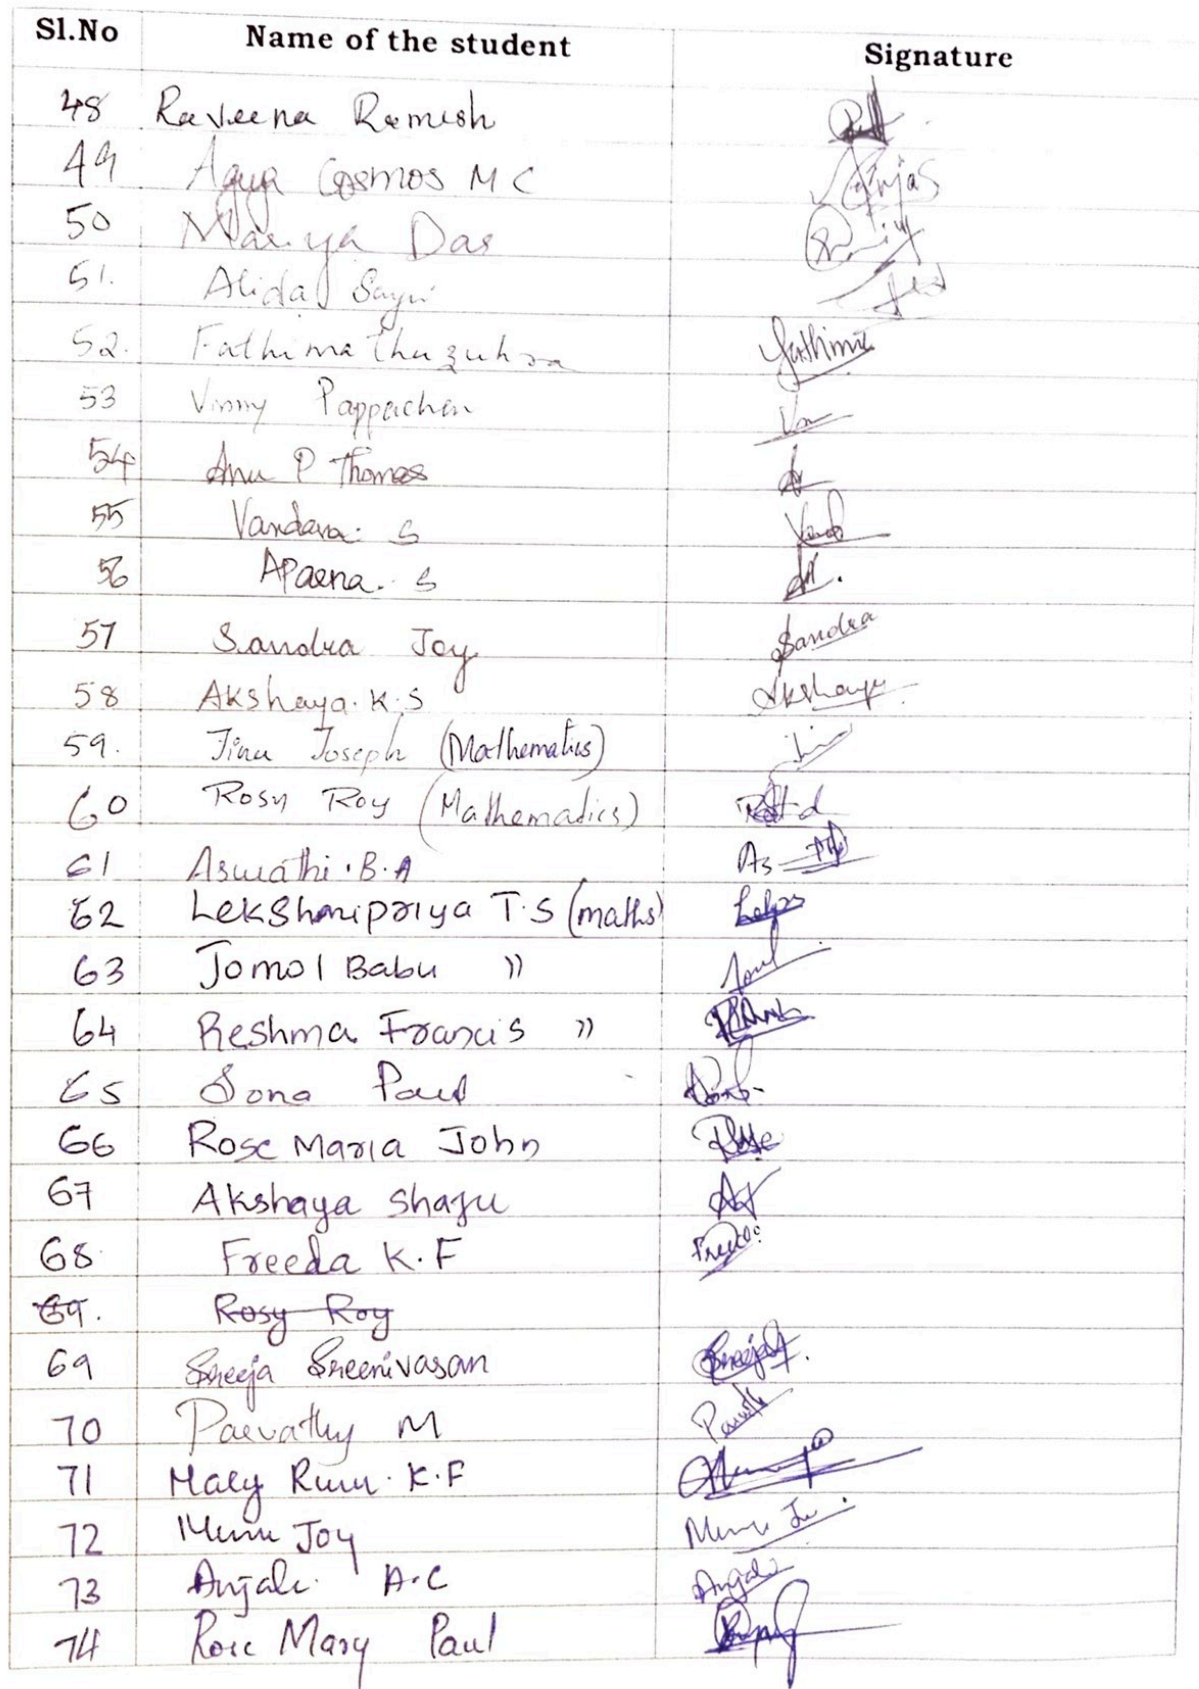 Sl.No Name of the student Signature
48 Raveena Ramesh
49 Cosmos M C
50 Mariya Das
51. Alida
52. Fathima thu zuhra Fathima
53 Vinny Pappachen
54 Anu P Thomas
55 Vandana. S
56 Aparna. S
57 Sandra Joy Sandra
58 Akshaya. K. S Akshaya
59. Jinu Joseph (Mathematics)
60 Rosy Roy (Mathematics)
61 Aswathi . B. A As
62 Lekshmipriya T. S (maths)
63 Jomol Babu "
64 Reshma Francis "
65 Sona Paul
66 Rose Maria John Rose
67 Akshaya Shaju
68 Freeda K. F Freeda
69. Rosy Roy
69 Sreeja Sreenivasan
70 Parvathy M
71 Mary Rinu . K. F
72 Minu Joy
73 Anjali. A.C Anjali
74 Rose Mary Paul